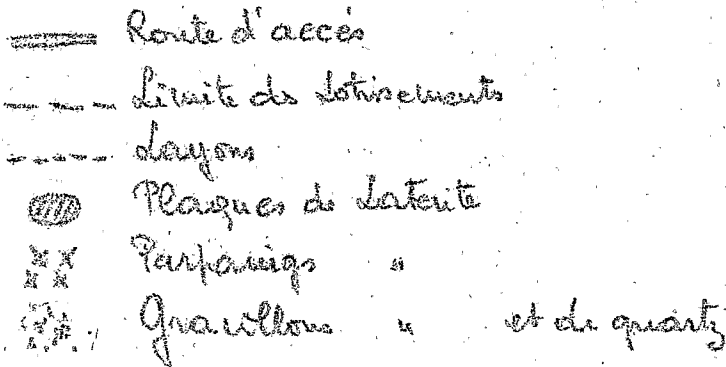 Route d'accés
Limite de Lotissements
Layons
Plaques de Laterite
Parpaings "
Gravillons " et de quartz